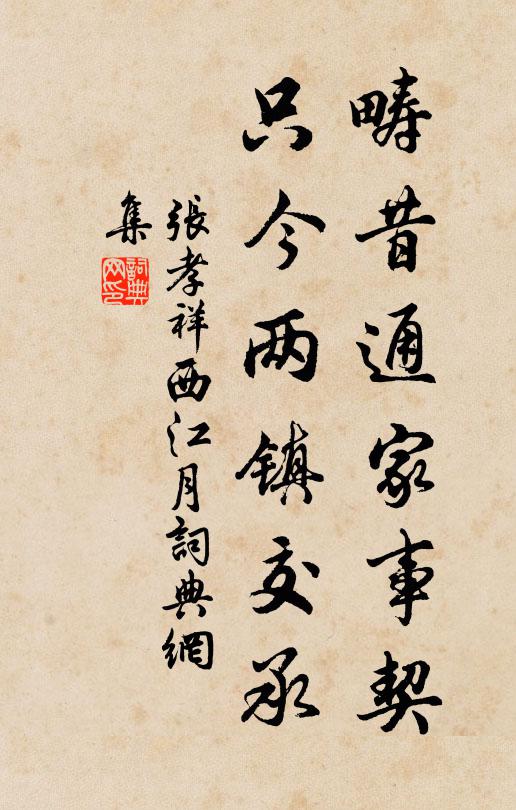 畴昔通家事契
只今两镇交承
張孝祥西江月詞典網
集
詞典
网印